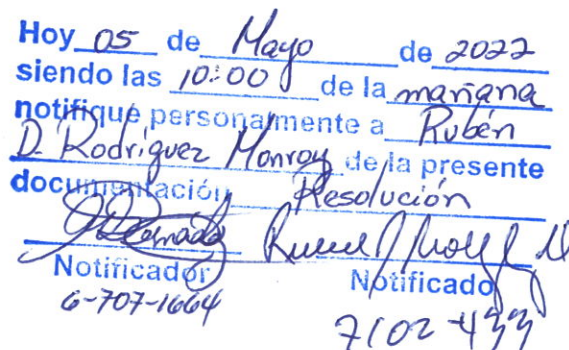 Hoy 05 de Mayo de 2022
siendo las 10:00 de la mañana
notifique personalmente a Rubén
D. Rodríguez Monroy de la presente
documentación Resolución
Notificador Notificado
6-707-1664